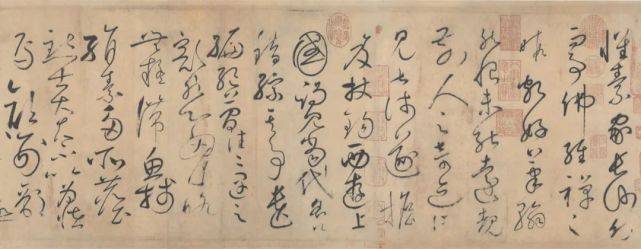 懷素家長沙幼而
事佛經禪之
暇頗好筆翰
然恨未能遠覩
前人之奇迹所
見甚淺遂擔
笈杖錫西遊上
國謁見當代名公
錯綜其事遺
編絕簡往往遇之
豁然心胸略
無疑滯魚牋
絹素多所塵
點士大夫不以為怪
焉顏刑部